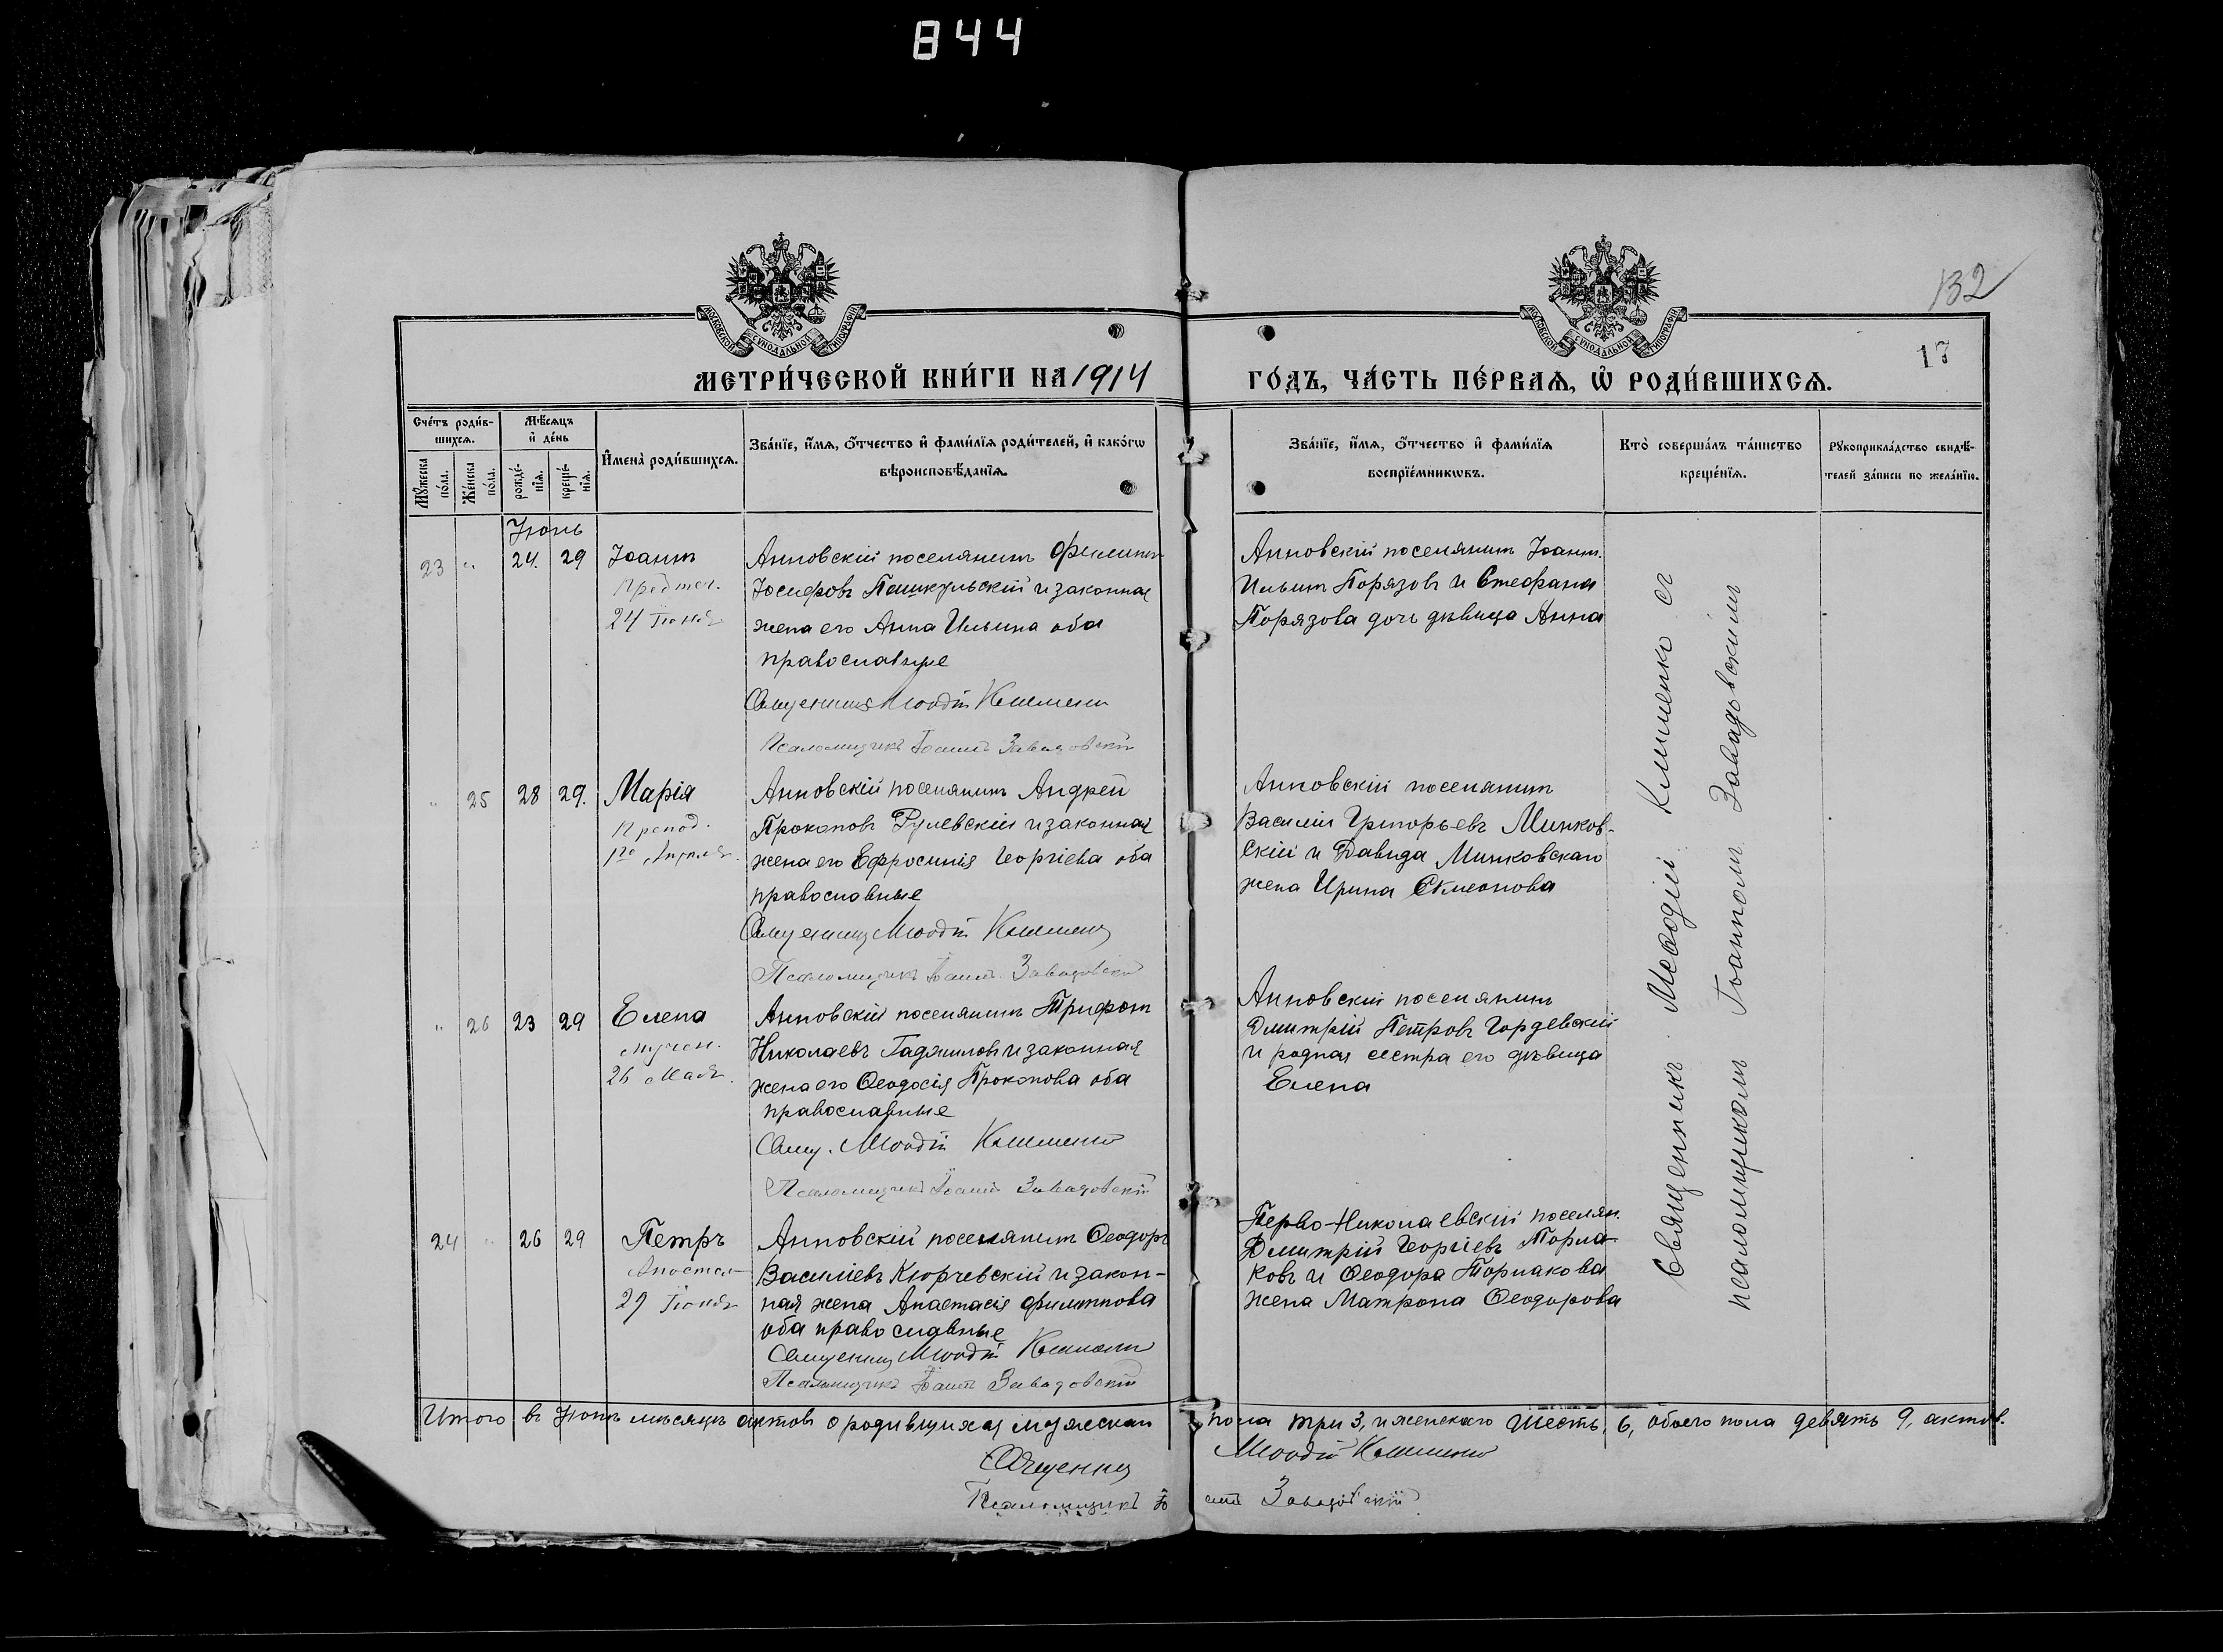 844
132
17
МЕТРИ́ЧЕСКОЙ КНИ́ГИ НА 1914
ГО́ДЪ, ЧА́СТЬ ПЕ́РВАѦ, Ѡ҆ РОДИ́ВШИХСѦ.
Сче́тъ роди́в-
шихсѧ.
Мѣ́сѧцъ
и҆ де́нь
Мꙋ́жеска
по́ла.
Же́нска
по́ла.
рожде́-
нїѧ.
креще́-
нїѧ.
И҆мена̀ роди́вшихсѧ.
Зва́нїе, и҆́мѧ, ѻ҆́тчество и҆ фами́лїѧ роди́телей, и҆ како́гѡ
вѣроисповѣ́данїѧ.
Зва́нїе, и҆́мѧ, ѻ҆́тчество и҆ фами́лїѧ
воспрїе́мникѡвъ.
Кто̀ соверша́лъ та́инство
креще́нїѧ.
Рꙋкоприкла́дство свидѣ́-
телей за́писи по жела́нїю.
Іюнь
23 " 24. 29 Іоаннъ
Предтеч.
24 Іюня
Анновскій поселянинъ Филиппъ
Іосифовъ Пашкульскій и законная
жена его Анна Ильина оба
православные
Священникъ Меѳодій Клименко
Псаломщикъ Іоаннъ Завадовскій
Анновскій поселянинъ Іоаннъ.
Ильинъ Порязовъ и Стефана
Порязова дочь дѣвица Анна
" 25 28 29. Марія
Препод.
1го Апрѣля.
Анновскій поселянинъ Андрей
Прокоповъ Рулевскій и законная
жена его Ефросинія Георгіева оба
православные
Священникъ Меѳодій Клименко
Псаломщикъ Іоаннъ Завадовскій
Анновскій поселянинъ
Василій Григорьевъ Минков-
скій и Давида Минковскаго
жена Ирина Симеонова
" 26 23 29 Елена
мучен.
26 Мая.
Анновскій поселянинъ Трифонъ
Николаевъ и законная
жена его Ѳеодосія Прокопова оба
православные
Свящ. Меѳодій Клименко
Псаломщикъ Іоаннъ Завадовскій
Анновскій поселянинъ
Дмитрій Петровъ Гордевскій
и родная сестра его дѣвица
Елена
24 " 26 29 Петръ
Апостол
29 Іюня
Анновскій поселянинъ Ѳеодоръ
Василіевъ Кюрчевскій и закон-
ная жена Анастасія Филиппова
оба православные
Священникъ Меѳодій Клименко
Псаломщикъ Іоаннъ Завадовскій
Перво-Николаевскій поселян.
Дмитрій Георгіевъ Торма-
ковъ и Ѳеодора Тормакова
жена Матрона Ѳеодорова
Священникъ Меѳодій Клименко съ
псаломщикомъ Іоанномъ Завадовскимъ
Итого въ Іюнѣ мѣсяцѣ актовъ о родившихся мужескаго пола три 3, и женскаго шесть, 6, обоего пола девять 9, актов.
Священникъ Меѳодій Клименко
Псаломщикъ Іоаннъ Завадовскій